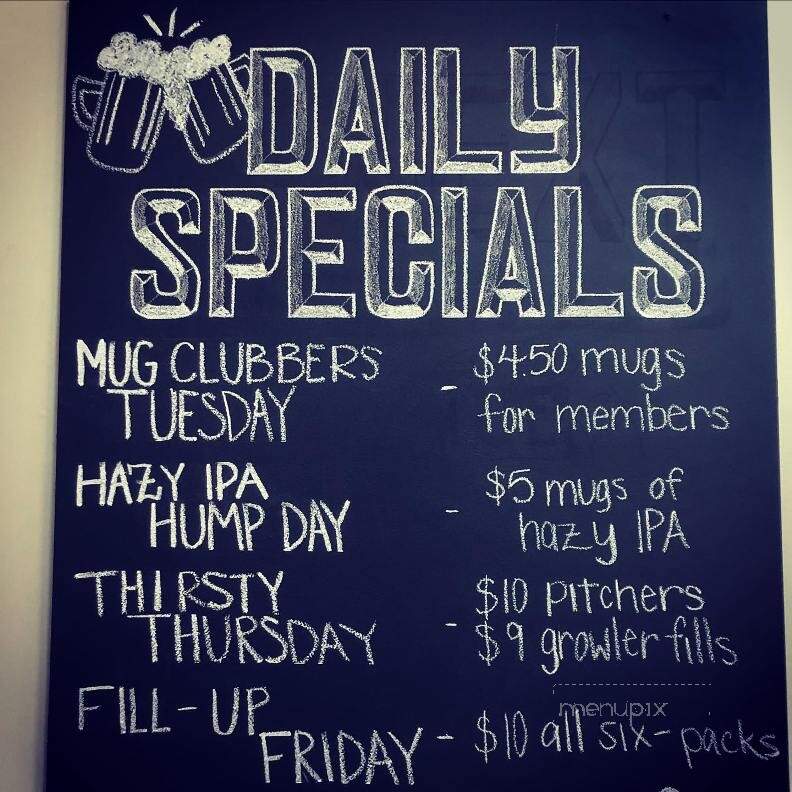 DAILY
SPECIALS
MUG CLUBBERS
TUESDAY - $4.50 mugs
for members
HAZY IPA
HUMP DAY - $5 mugs of
hazy IPA
THIRSTY
THURSDAY - $10 pitchers
$9 growler fills
FILL-UP
FRIDAY - $10 all six-packs
menupix